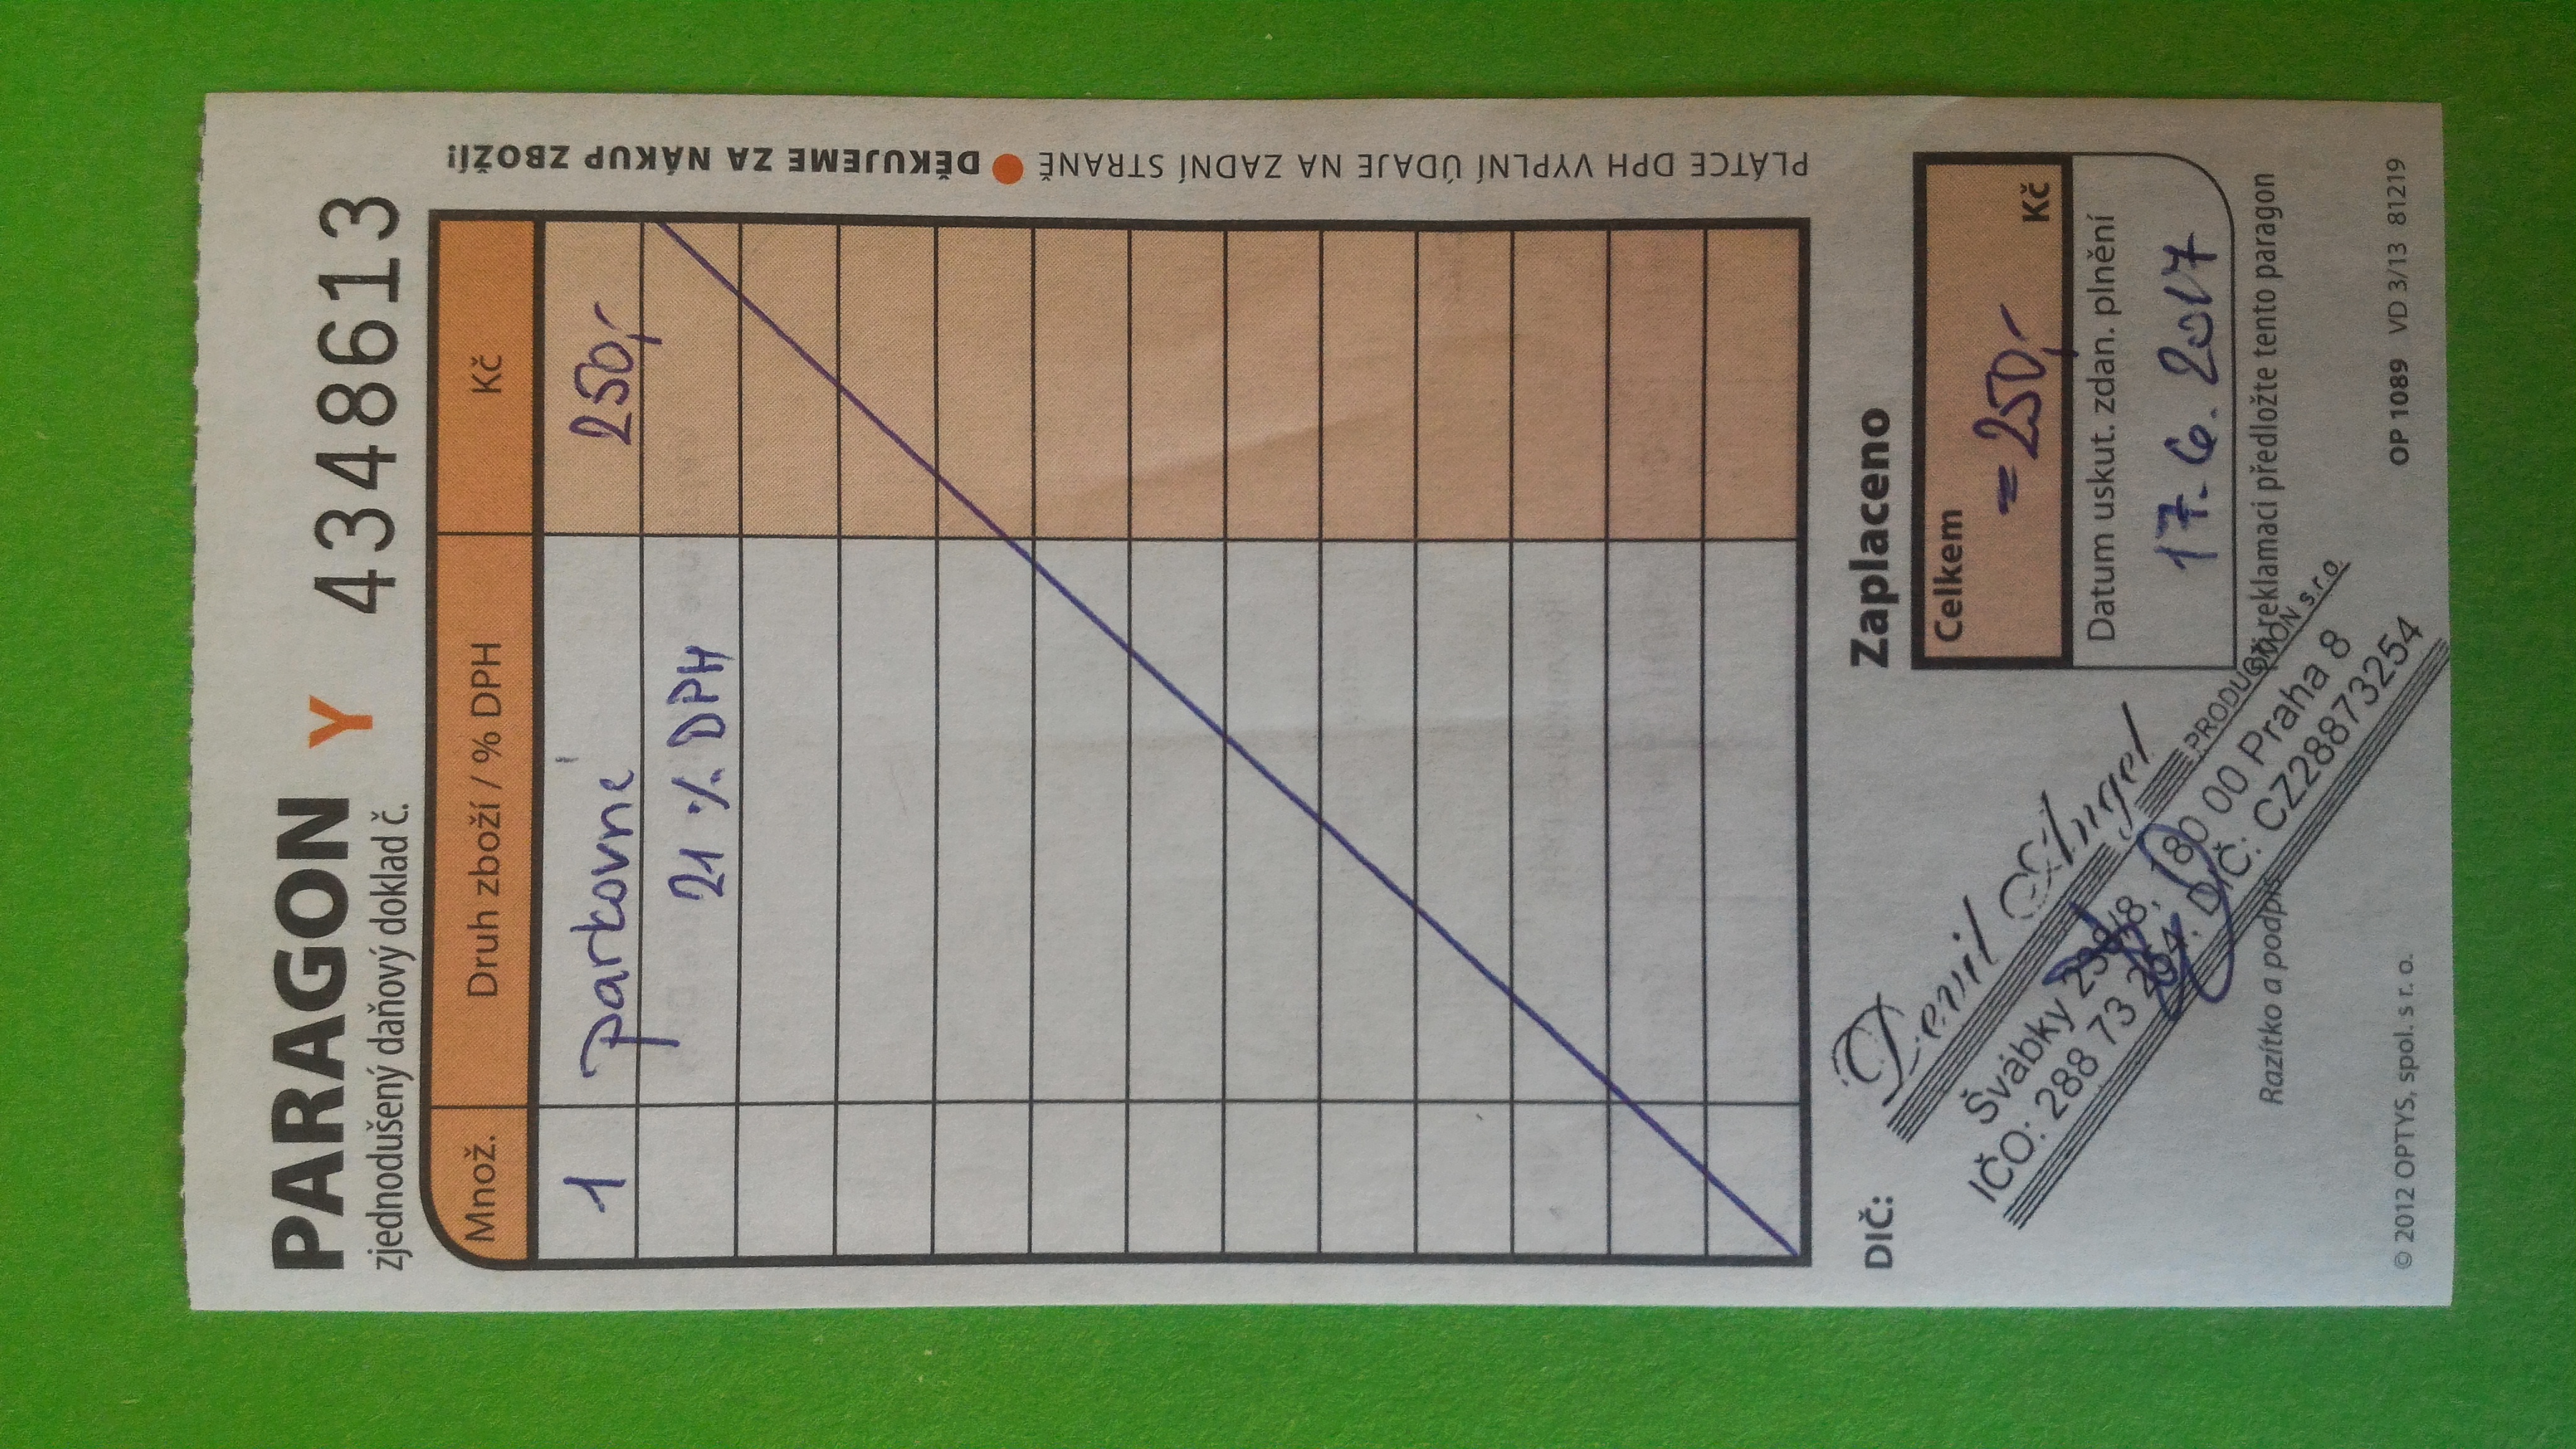 PARAGON Y 4348613
zjednodušený daňový doklad č.
Množ. Druh zboží / % DPH Kč
1 parkovné 250,-
21 % DPH
PLÁTCE DPH VYPLNÍ ÚDAJE NA ZADNÍ STRANĚ ● DĚKUJEME ZA NÁKUP ZBOŽÍ!
DIČ:
Devil Angel
PRODUCTION s.r.o.
Švábky 238/8, 180 00 Praha 8
IČO: 288 73 254, DIČ: CZ28873254
Razítko a podpis
Zaplaceno
Celkem
=250,- Kč
Datum uskut. zdan. plnění
17. 6. 2017
Při reklamaci předložte tento paragon
© 2012 OPTYS, spol. s r. o.
OP 1089 VD 3/13 81219